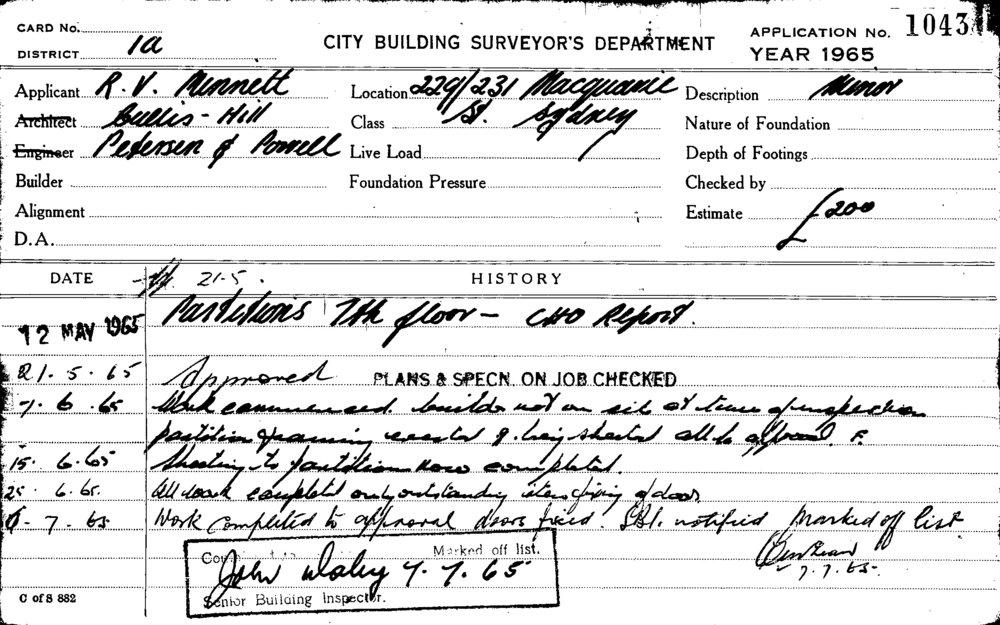 CARD No.
DISTRICT 1a
CITY BUILDING SURVEYOR'S DEPARTMENT
APPLICATION No. 1043
YEAR 1965
Applicant R. V. Minnett Location 229/231 Macquarie Description Minor
Architect Cullis-Hill Class St. Sydney Nature of Foundation
Engineer Petersen & Powell Live Load Depth of Footings
Builder Foundation Pressure Checked by
Alignment Estimate £200
D.A.
DATE 21-5. HISTORY
12 MAY 1965 Partitions 7th floor - CHO Report.
21.5.65 Approved PLANS & SPECN. ON JOB CHECKED
7.6.65 Work commenced. builder not on site at time of inspection
partition framing erected & being sheeted all to approval. F.
15.6.65 Sheeting to partition now completed.
25.6.65. All work completed only outstanding item fixing of door
7.65 Work completed to approval doors fixed. S.B.I. notified Marked off list
7.7.65.
Marked off list.
John 7.7.65
Senior Building Inspector.
C of S 882